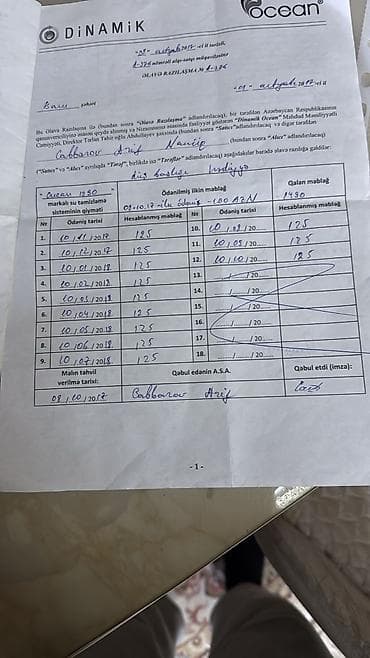 DiNAMiK
ocean®
"09" oktyabr 2017 -ci il tarixli,
A-376 nömrəli alqı-satqı müqaviləsinə
ƏLAVƏ RAZILAŞMA № A-376
"09" oktyabr 2017-ci il
Bakı şəhəri
Bu Əlavə Razılaşma ilə (bundan sonra "Əlavə Razılaşma" adlandırılacaq), bir tərəfdən Azərbaycan Respublikasının
qanunvericiliyinə əsasən qeydə alınmış və Nizamnamə əsasında fəaliyyət göstərən "Dinamik Ocean" Məhdud Məsuliyyətli
Cəmiyyəti, Direktor Tərlan Tahir oğlu Abdullayev şəxsində (bundan sonra "Satıcı" adlandırılacaq) və digər tərəfdən
Cabbarov Arif (bundan sonra "Alıcı" adlandırılacaq)
("Satıcı" və "Alıcı" ayrılıqda "Tərəf", birlikdə isə "Tərəflər" adlandırılacaq) aşağıdakılar barədə əlavə razılığa gəldilər:
"Ocean 1590"
markalı su təmizləmə
sisteminin qiyməti
Ödənilmiş ilkin məbləğ
Qalan məbləğ
09.10.17 -ilk ödəniş -100 AZN
1490
№ Ödəniş tarixi Hesablanmış məbləğ № Ödəniş tarixi Hesablanmış məbləğ
1. 10/11/2017 125 10. 10/08/20 125
2. 10/12/2017 125 11. 10/09/20 125
3. 10/01/2018 125 12. 10/10/20 125
4. 10/02/2018 125 13. / /20
5. 10/03/2018 125 14. / /20
6. 10/04/2018 125 15. / /20
7. 10/05/2018 125 16. / /20
8. 10/06/2018 125 17. / /20
9. 10/07/2018 125 18. / /20
Malın təhvil
verilmə tarixi:
Qəbul edənin A.S.A.
Qəbul etdi (imza):
09/10/2017
Cabbarov Arif
- 1 -